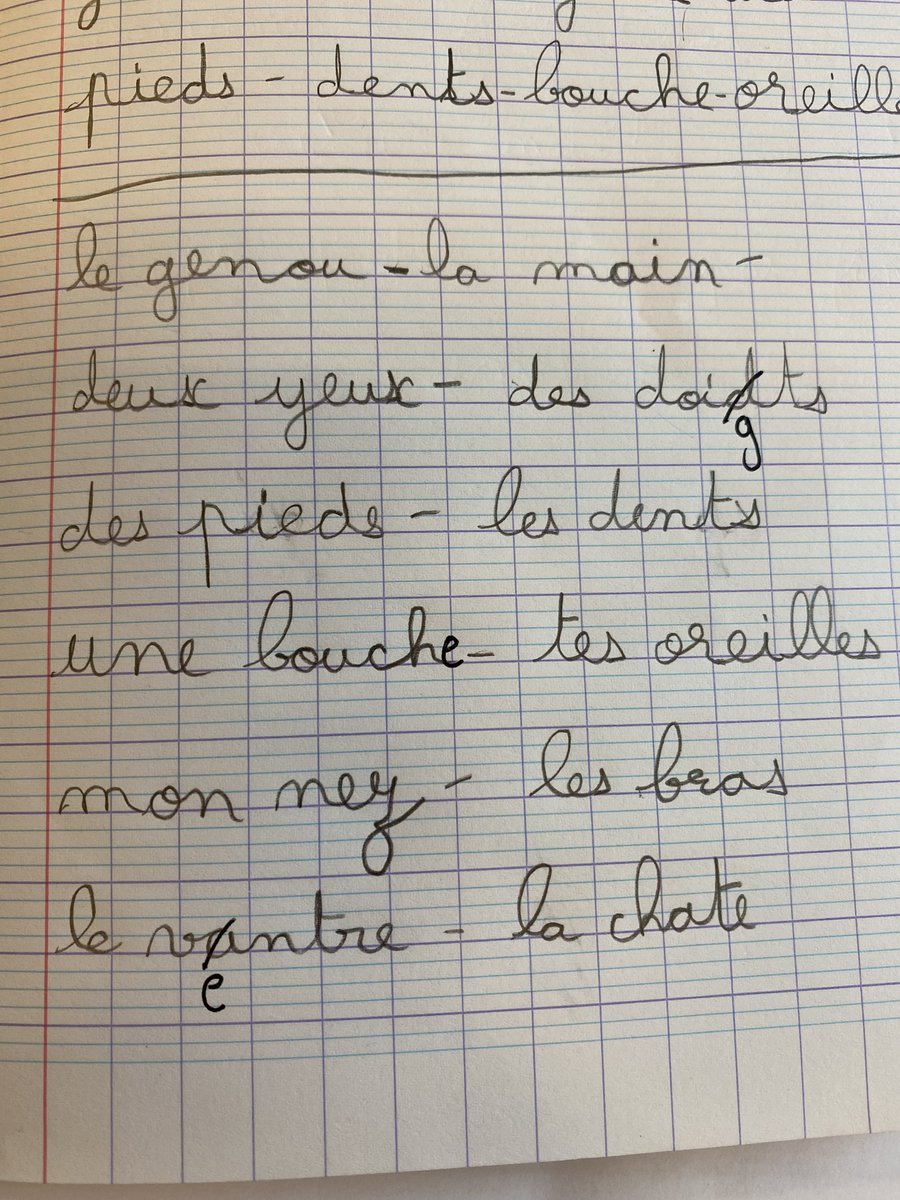 pieds - dents - bouche - oreill
le genou - la main -
deux yeux - des doidts
g
des pieds - les dents
une bouche - tes oreilles
mon nez - les bras
le vantre - la chate
e